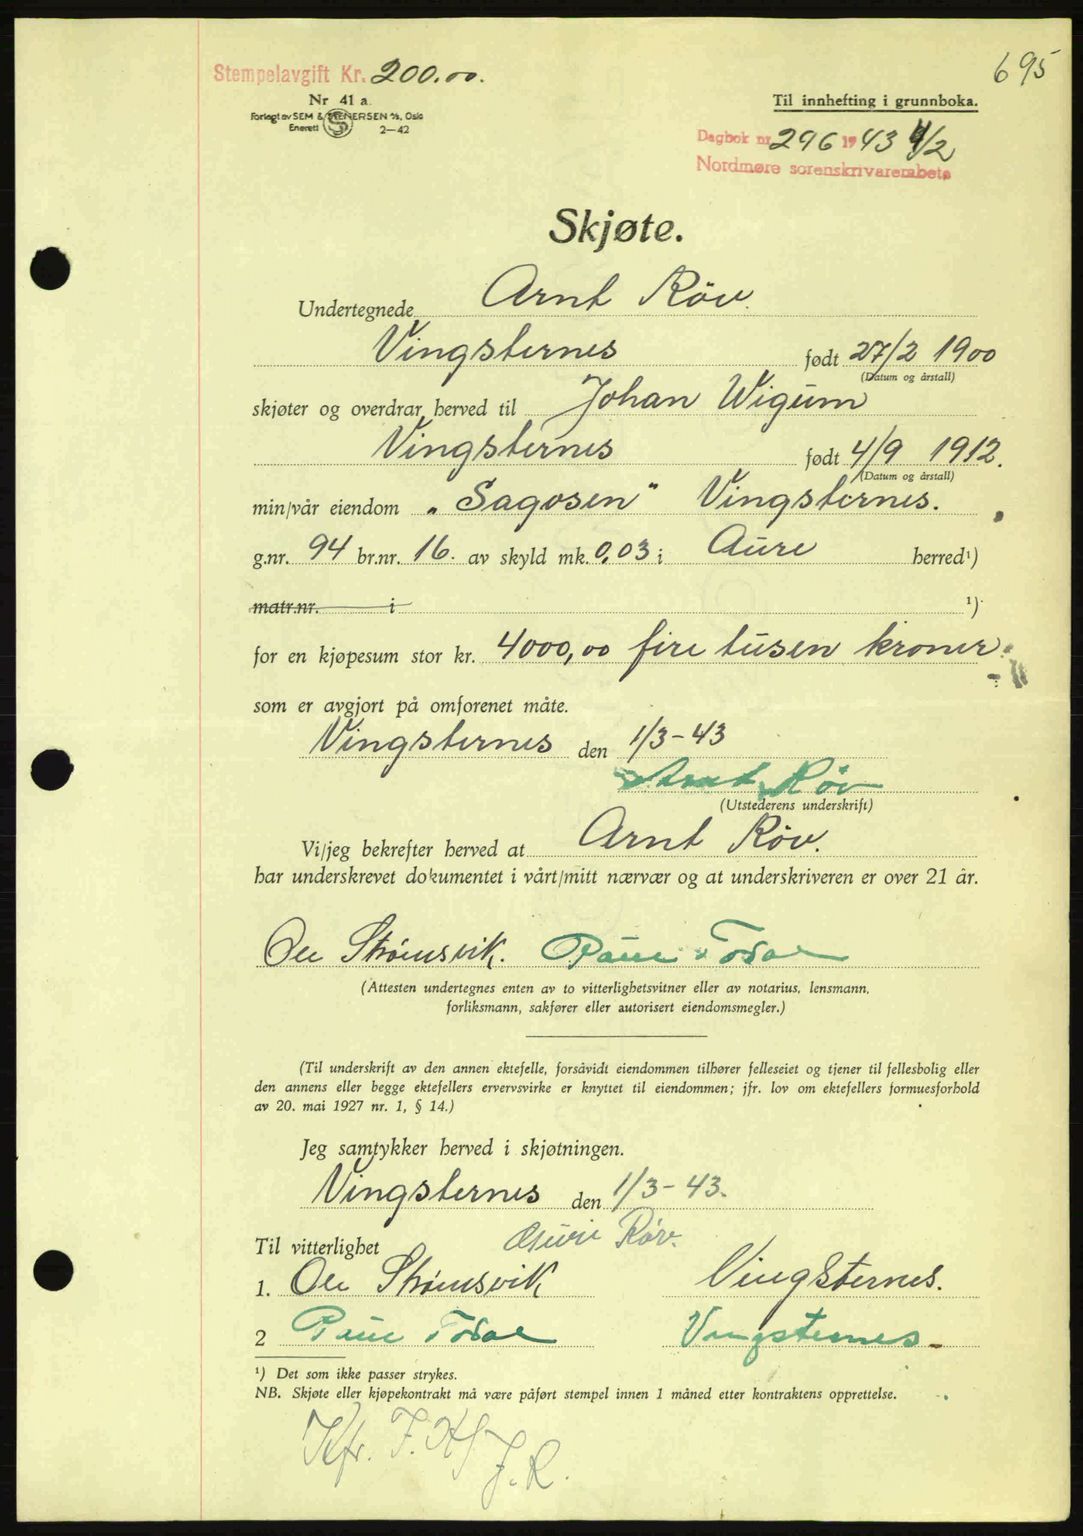 695
Stempelavgift Kr. 200.00.
Nr 41 a.
Forlagt av SEM & STENERSEN A/S, Oslo
Enerett 2—42
Til innhefting i grunnboka.
Dagbok nr 296 1943 4/2
Nordmøre sorenskrivarembete
Skjøte.
Undertegnede Arnt Röv.
Vingsternes født 27/2 1900
(Datum og årstall)
skjøter og overdrar herved til Johan Wigum
Vingsternes født 4/9 1912.
(Datum og årstall)
min/vår eiendom „Sagosen" Vingsternes.
g.nr. 94 br.nr. 16. av skyld mk. 0,03 i Aure herred¹)
matr.nr. i ¹)
for en kjøpesum stor kr. 4000,00 fire tusen kroner.
som er avgjort på omforenet måte.
Vingsternes den 1/3-43
Arnt Röv
(Utstederens underskrift)
Vi/jeg bekrefter herved at Arnt Röv.
har underskrevet dokumentet i vårt/mitt nærvær og at underskriveren er over 21 år.
Ole Strömsvik. Paul Todal
(Attesten undertegnes enten av to vitterlighetsvitner eller av notarius, lensmann,
forliksmann, sakfører eller autorisert eiendomsmegler.)
(Til underskrift av den annen ektefelle, forsåvidt eiendommen tilhører felleseiet og tjener til fellesbolig eller
den annens eller begge ektefellers ervervsvirke er knyttet til eiendommen; jfr. lov om ektefellers formuesforhold
av 20. mai 1927 nr. 1, § 14.)
Jeg samtykker herved i skjøtningen.
Vingsternes den 1/3-43.
Guri Röv.
Til vitterlighet
1. Ole Strömsvik Vingsternes.
2 Paul Todal Vingsternes.
¹) Det som ikke passer strykes.
NB. Skjøte eller kjøpekontrakt må være påført stempel innen 1 måned etter kontraktens opprettelse.
Kfr. J.R.